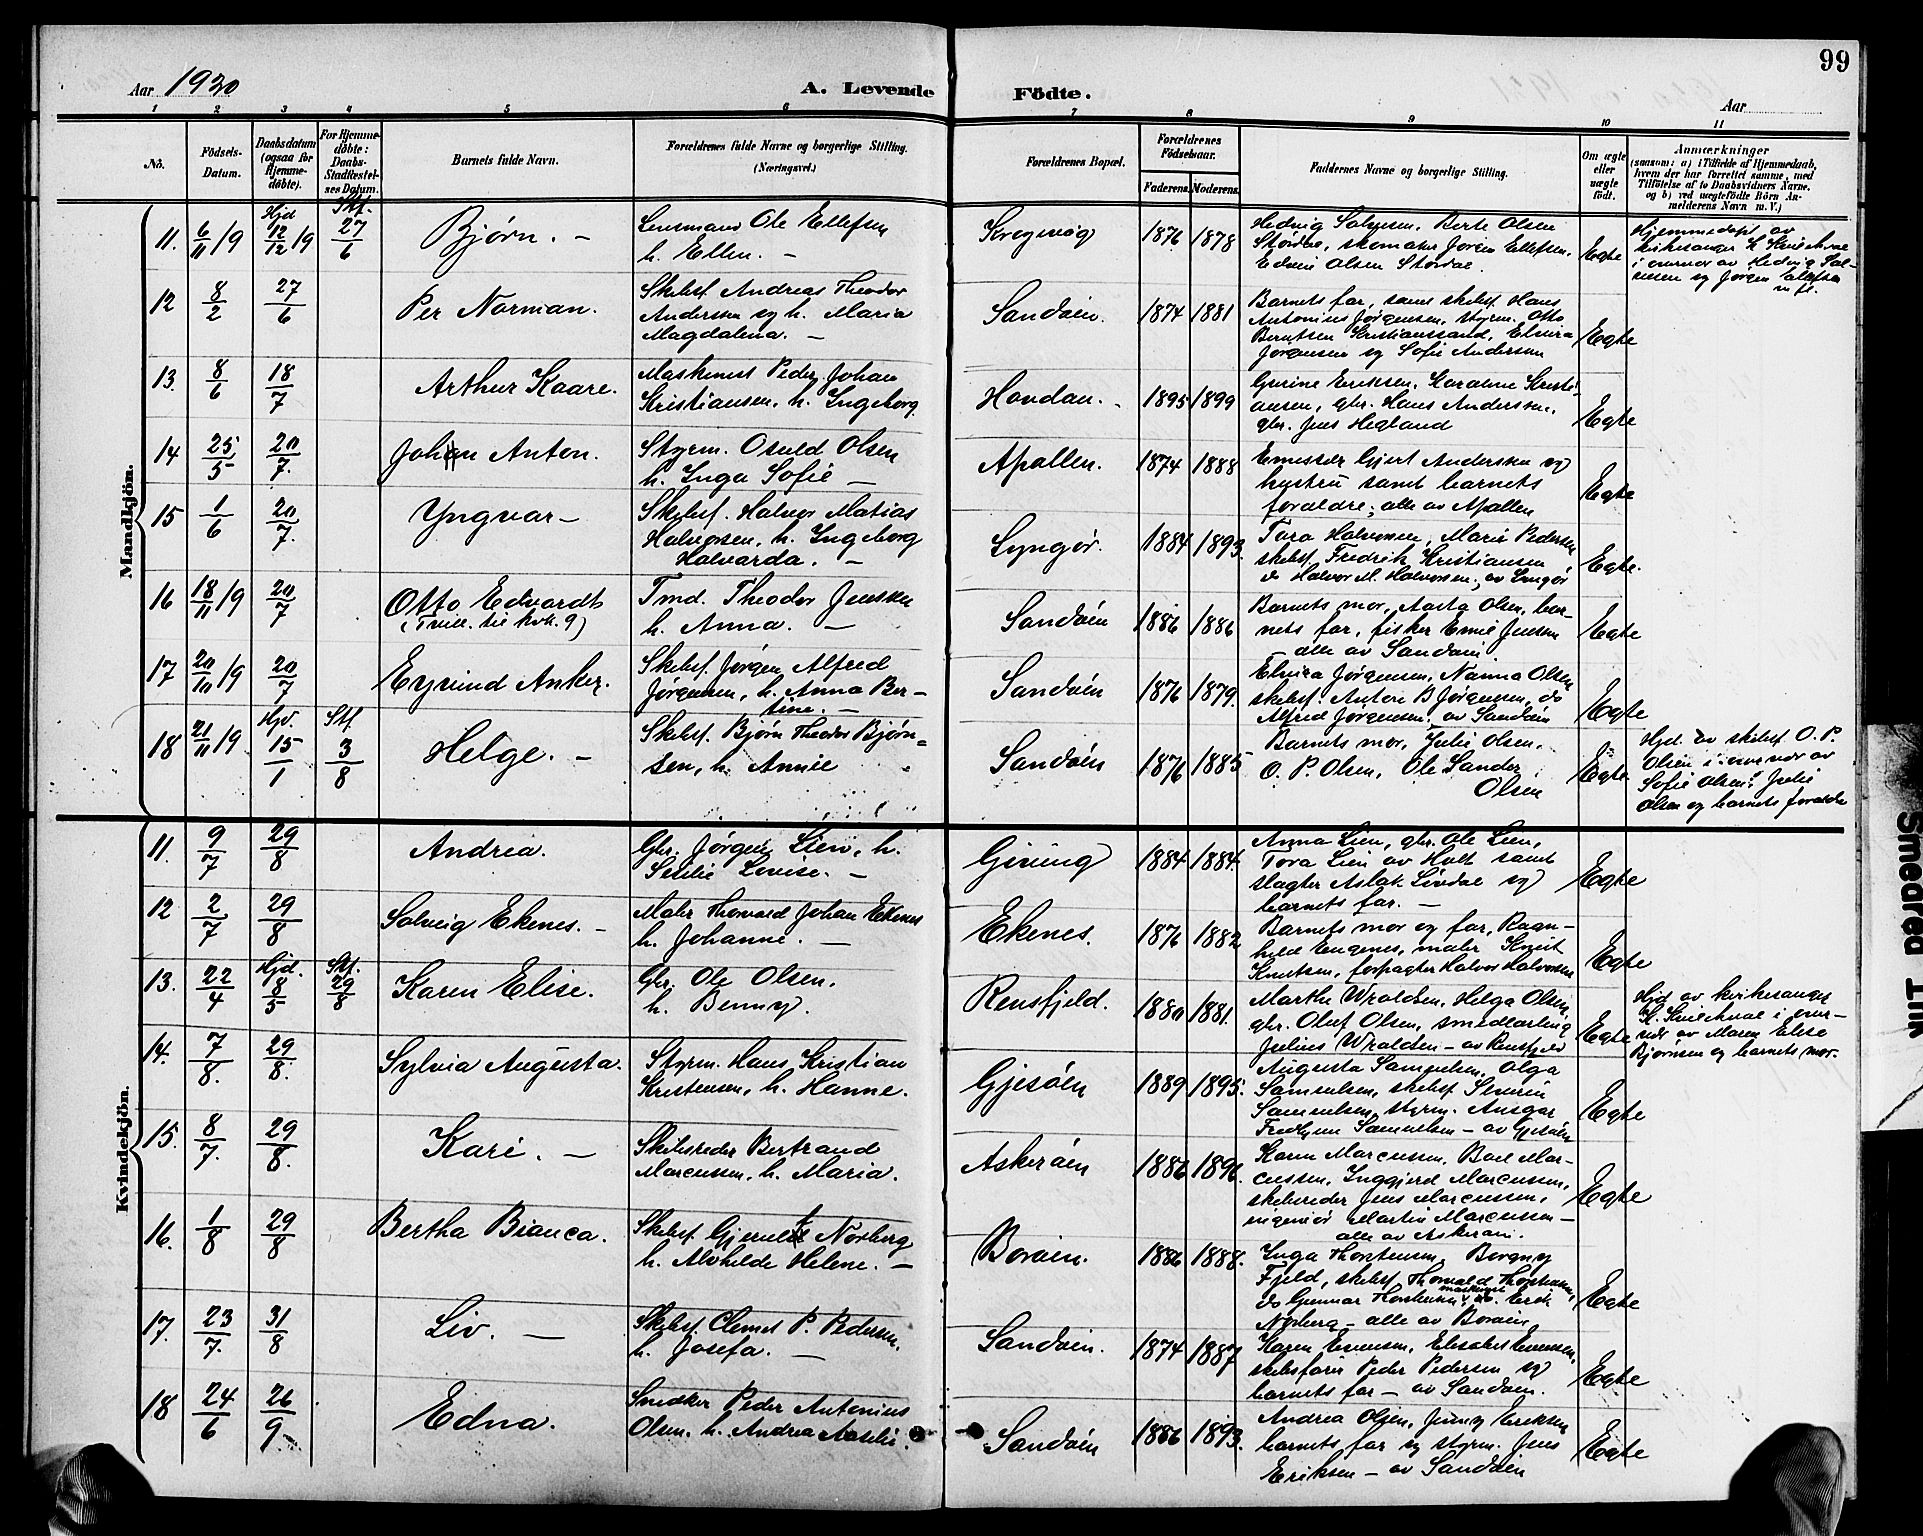 99
Aar 1920
A. Levende Födte.
Aar
1 2 3 4 5 6 7 8 9 10 11
No.
Födsels-Datum.
Daabsdatum (ogsaa for Hjemme-döbte).
For Hjemme-döbte: Daabs-Stadfæstel-ses Datum.
Barnets fulde Navn.
Forældrenes fulde Navne og borgerlige Stilling. (Næringsvei.)
Forældrenes Bopæl.
Forældrenes Födselsaar.
Faderens. Moderens.
Faddernes Navne og borgerlige Stilling.
Om ægte eller uægte födt.
Anmærkninger
(saasom: a) i Tilfælde af Hjemmedaab,
hvem der har forrettet samme, med
Tilföielse af to Daabsvidners Navne.
og b) ved uægtefödte Börn An-
melderens Navn m. V.)
Mandkjön.
11. 6/11 19 Hjd 12/12 19 Stf. 27/6 Bjørn. — Lensmand Ole Ellefsen
h. Ellen. — 1876 1878 Egte
Hedvig Salvesen, Berte Olsen
Størdal, skomaker Jørgen Ellefsen,
Edvin Olsen Størdal.
Hjemmedøpt av
kirkesanger
i overvær av Hedvig Sal-
vesen og Jørgen Ellefsen
12 8/2 27/6 Per Norman. Skibsf. Andreas Theodor
Andersen og h. Maria
Magdalena. — Sandøen. 1874 1881 Egte
Barnets far, samt skibsf. Hans
Antonius Jørgensen, styrm. Otto
Berntsen Kristianssand, Elvira
Jørgensen og Sofie Andersen
13. 8/6 18/7 Arthur Kaare. Maskinist Peder Johan
Kristiansen, h. Ingeborg. Havdan. 1895 1899 Egte
Gurine Eriksen, Karoline Kristi-
ansen, gbr. Hans Andersen,
gbr. Jens Hegland
14 25/5 20/7. Johan Anton. Styrm. Osuld Olsen
h. Inga Sofie — Apallen. 1874 1888 Egte
Gjert Andersen og
hustru samt barnets
forældre; alle av Apallen
15 1/6 20/7. Yngvar — Skibsf. Halvor Matias
Halvorsen, h. Ingeborg
Halvarda. — Lyngør. 1884 1893. Egte.
Tora Halvorsen, Marie Pedersen
skibsf. Fredrik Kristiansen
do Halvor M. Halvorsen; av Lyngør
16 18/11 19 20/7 Otto Edvardt
(Trill. til kvk. 9) Tmd. Theodor Jensen
h. Anna. — Sandøen 1886 1886 Egte
Barnets mor, Aasta Olsen, bar-
nets far, fisker Emil Jensen
alle av Sandøen
17 20/10 19 20/7 Eyvind Anker. Skibsf. Jørgen Alfred
Jørgensen, h. Anna Ber-
tine. — Sandøen 1876 1879. Egte
Elvira Jørgensen, Nanna Olsen
skibsf. Anton B Jørgensen, do
Alfred Jørgensen, av Sandøen
18 21/11 19. Hjd. 15/1 Stf 3/8 Helge. — Skibsf. Bjørn Theodor Bjørn-
sen, h. Annie Sandøen 1876 1885 Egte
Barnets mor, Julie Olsen,
O. P. Olsen, Ole Sander
Olsen
Hjd. av skibsf. O. P.
Olsen i overvær av
Sofie Olsen, Julie
Olsen og barnets forældre
Kvindekjön.
11. 9/7 29/8 Andrea. Gbr. Jørgen Lien, h.
Lovise. — Giving 1884 1884. Egte
Anna Lien, gbr. Ole Lien,
Tora Lien av Holt samt
slagter Aslak Lindal og
barnets far. —
12 2/7 29/8 Solveig Ekenes. — Maler Thorvald Johan Ekenes
h. Johanne. — Ekenes. 1876 1882 Egte
Barnets mor og far, Ragn-
hild Engenes, maler Knut
Knutsen, forpagter Halvor Halvorsen
13. 22/4 Hjd. 8/5 Stf. 29/8 Karen Elise. Gbr. Ole Olsen,
h. Benny. Rensfjeld. 1880 1881. Egte
Marthe Wraldsen, Helga Olsen,
gbr. Oluf Olsen, smedlærling
Julius Wraldsen — av Rensfjeld
Hjd av kirkesanger
i over-
vær av Maren Elise
Bjørnsen og barnets mor.
14. 7/8. 29/8. Sylvia Augusta. Styrm. Hans Kristian
Kristensen, h. Hanne. Gjesøen 1889 1895. Egte
Augusta Samuelsen, Olga
Samuelsen, skibsf. Severin
Samuelsen, styrm. Ansgar
Samuelsen — av Gjesøen
15. 8/7. 29/8. Kari. — Skibsreder Bertrand
Marcussen, h. Maria. Askerøen 1886 1896. Egte
Karen Marcussen, Mar-
cussen, Inggjerd Marcussen,
skibsreder Jens Marcussen,
ingeniør Martin Marcussen —
alle av Askerøen.
16. 1/8 29/8 Bertha Bianca. Skibsf. Norberg
h. Alvhilde Helene. — Borøen. 1886 1888. Egte
Inga Thorstensen, Borgny
Fjeld, skibsf. Thorvald Thorstensen,
do Gunnar Thorstensen, maskinist Erik
Norberg — alle av Borøen
17. 23/7. 31/8 Liv. — Skibsf. Clemet P. Pedersen,
h. Josefa. — Sandøen. 1874 1887 Egte
Karen Evensen, Elisabet Evensen,
skibsfører Peder Pedersen og
barnets far — av Sandøen.
18 24/6 26/9 Edna. Snedker Peder Antonius
Olsen, h. Andrea Sandøen 1886 1893. Egte
Andrea Olsen, Jenny Eriksen
barnets far og styrm. Jens
Eriksen — av Sandøen
Smeared Ink